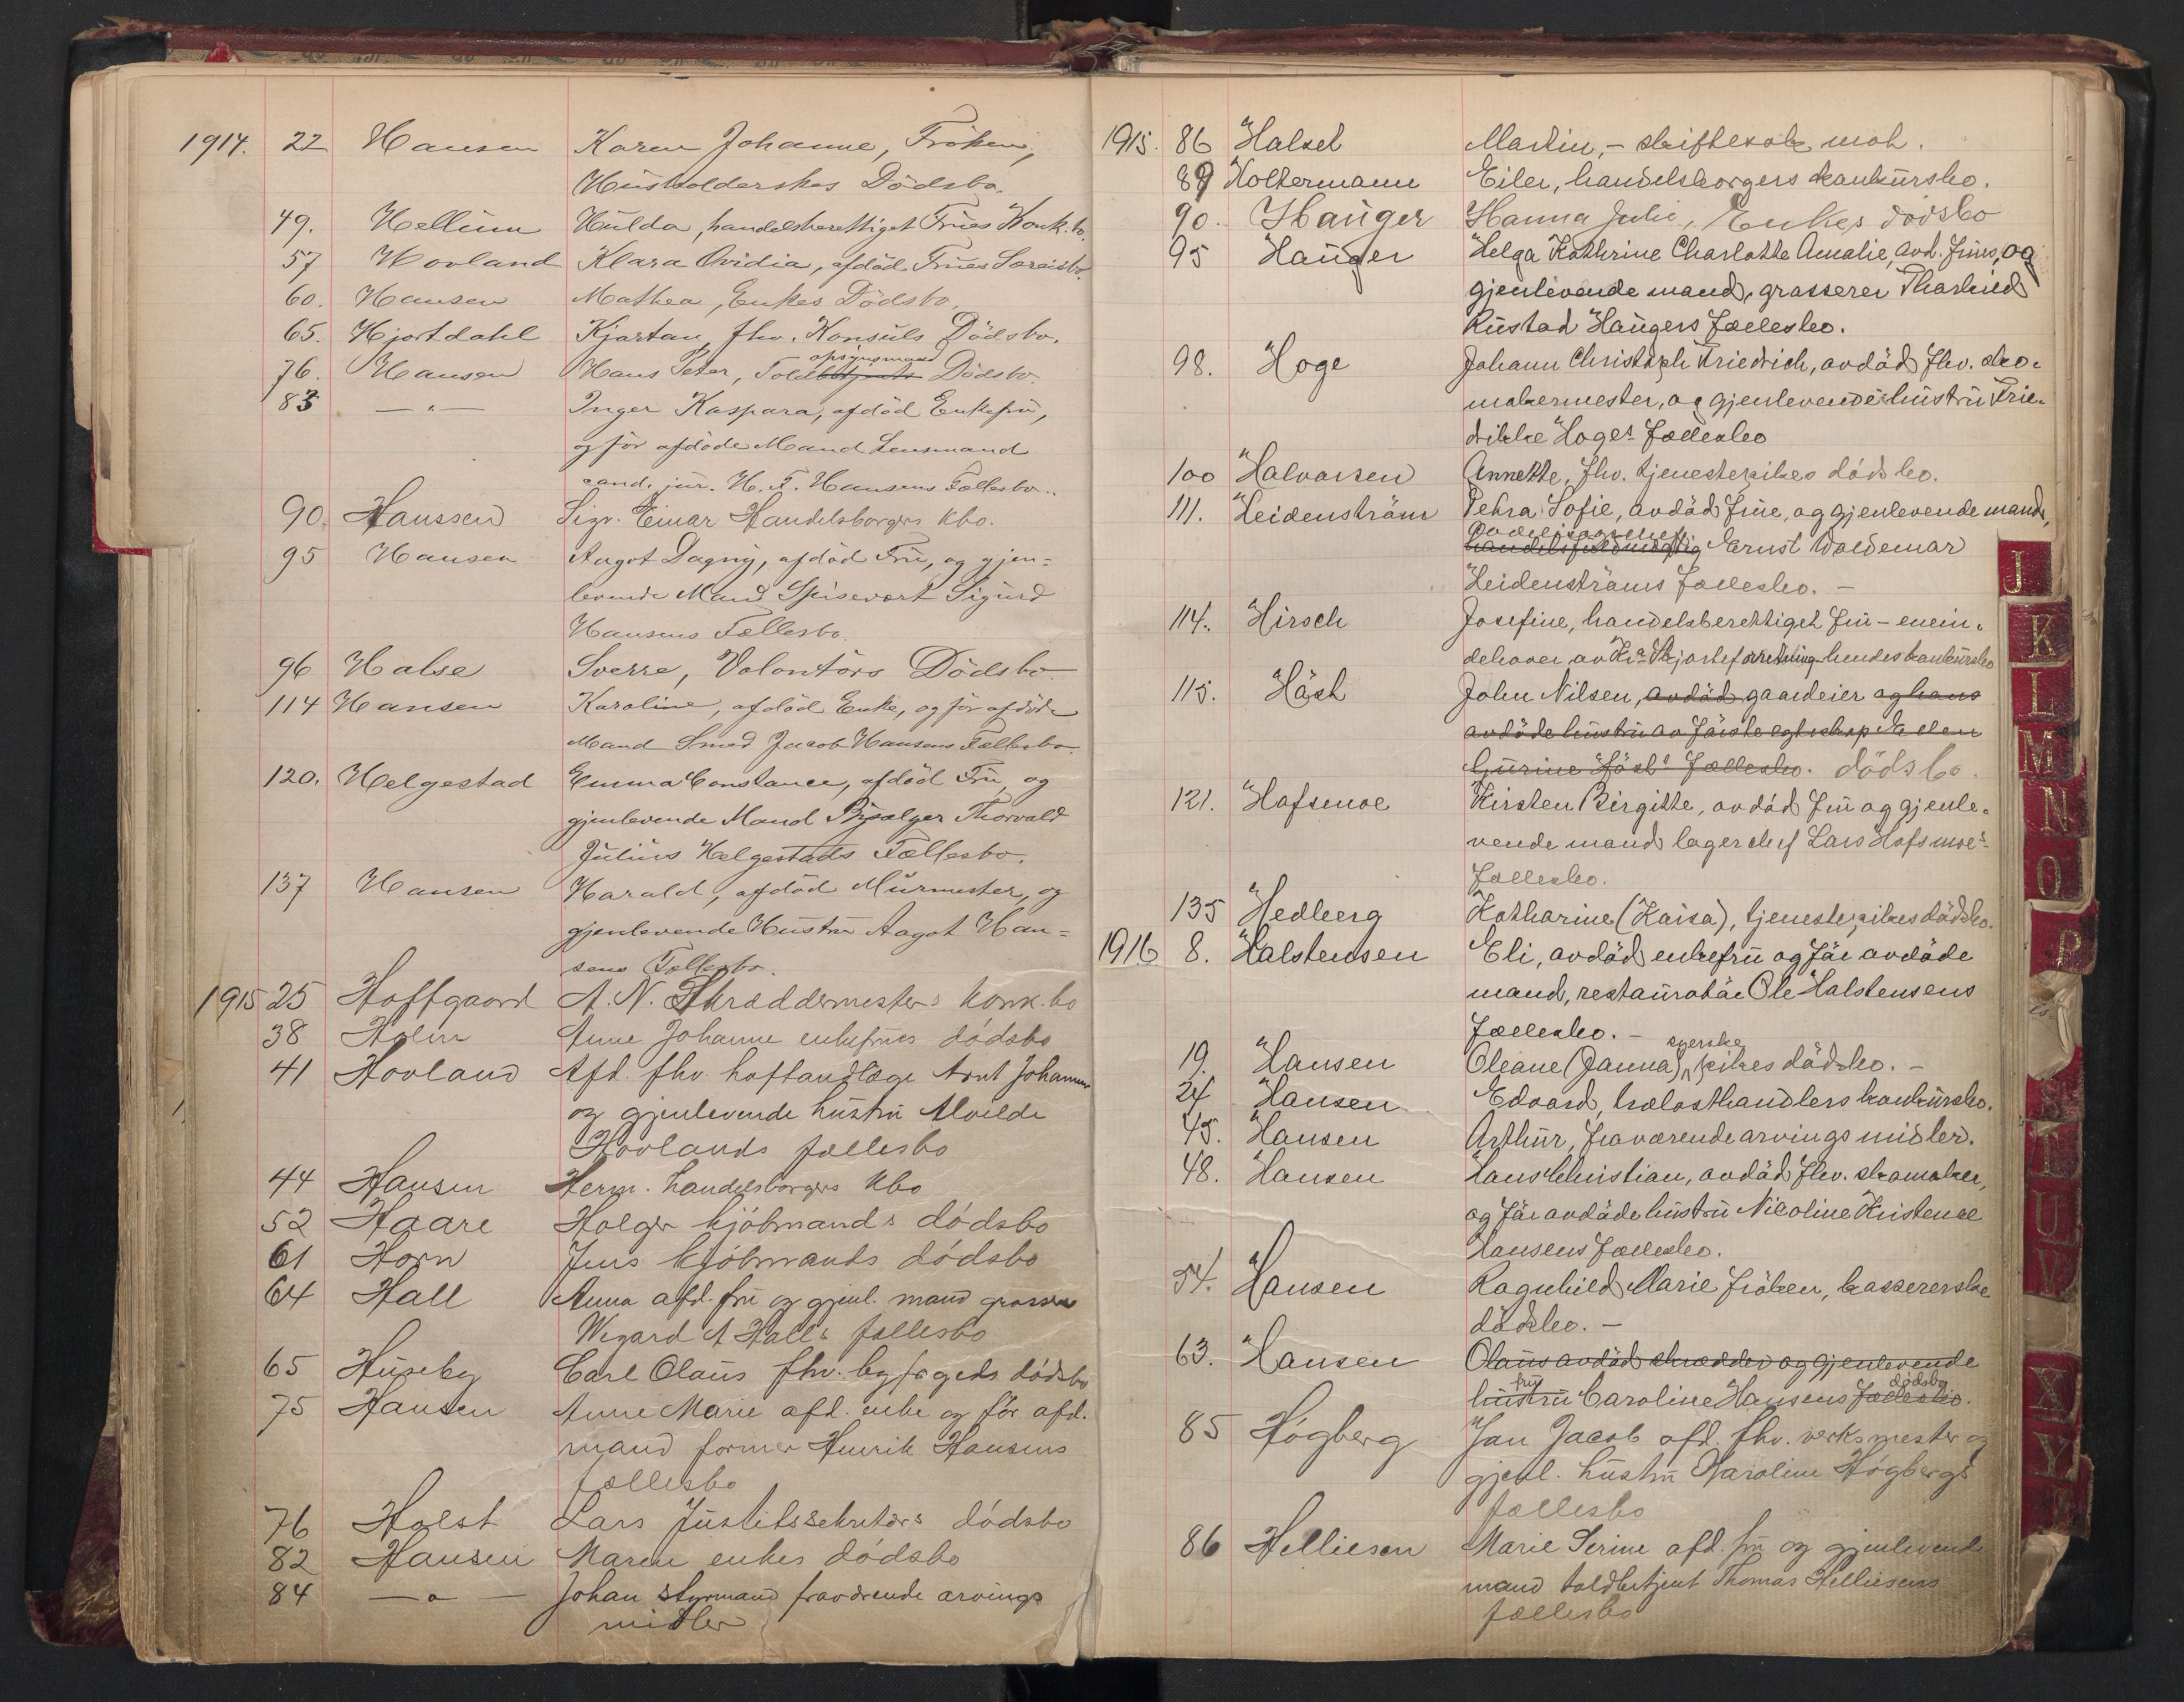 1914. 22 Hansen Karen Johanne, Fröken,
Husholderskes Dödsbo.
49. Hellum Hulda, handelsberettiget Frues Konk.bo.
57 Hovland Klara Ovidia, afdöd Frues Særeisbo.
60. Hansen Mathea, Enkes Dödsbo.
65. Hjortdahl Kjartan, fhv. Konsuls Dödsbo.
opsynsmand
76. Hansen Hans Peter, Toldbetjents Dödsbo.
83 —„— Inger Kaspara, afdöd Enkefru,
og för afdöde Mand Lensmand
cand. jur. H. F. Hansens Fællesbo.
90. Hanssen Sigv. Einar Handelsborgers kbo.
95 Hansen Aagot Dagny, afdöd Fru, og gjen=
levende Mand Spisevert Sigurd
Hansens Fællesbo.
96 Halse Sverre, Volontörs Dödsbo.
114 Hansen Karoline, afdöd Enke, og för afdöde
Mand Smed Jacob Hansens Fællesbo.
120. Helgestad Emma Constance, afdöd Fru og
gjenlevende Mand Thorvald
Julius Helgestads Fællesbo.
137 Hansen Harald, afdöd Murmester, og
gjenlevende Hustru Aagot Han=
sens Fællesbo.
1915 25 Hoffgaard A. N. Skræddermesters konk.bo
38 Holm Anne Johanne enkefrues dódsbo
41 Hovland Afd. fhv. hoftandlæge Arnt Johannes
og gjenlevende hustru Alvilde
Hovlands fællesbo
44 Hansen Herm. handelsborgers kbo
52 Haare Holger kjöbmands dódsbo
61 Horn Jens kjóbmands dódsbo
64 Hall Anna afd. fru og gjenl. mand grosserer
Wegard A Halls fællesbo
65 Huseby Carl Olaus fhv. byfogeds dódsbo
75 Hansen Anne Marie afd. enke og för afd.
mand former Henrik Hansens
fællesbo
76 Holst Lars Justitssekretærs dódsbo
82 Hansen Maren enkes dódsbo
84 —„— Johan styrmand fraværende arvings
midler
1915. 86 Halsel Martin, – skiftesak moh.
89 Holtermann Eiler, handelsborgers konkursbo.
90. Hauger Hanna Julie, Enkes dödsbo
95 Hauger Helga Kathrine Charlotte Amalie, avd. frues, og
gjenlevende mand, grosserer Thorleif
Rustad Haugers fællesbo.
98. Hoge Johann Christoph Friedrich, avdöd fhv. sko-
makermester, og gjenlevende hustru Frie-
drikke Hoges fællesbo
100 Halvorsen Annette, fhv. tjenestepikes dödsbo.
111. Heidenström Petra Sofie, avdöd frue, og gjenlevende mand,
handelsfuldmægtig Ernst Woldemar
Heidenströms fællesbo. –
114. Hirsch Josefine, handelsberettiget fru – enein-
dehaver av Kra Skjorteforretning hendes konkursbo
115. Häsk John Nilsen, avdöd gaardeier og hans
avdöde hustru av förste egteskap Ellen
Gurine Häsk's fællesbo. dödsbo.
121. Hafsmoe Kirsten Birgitte, avdöd fru og gjenle-
vende mand lagerchef Lars Hafsmoe's
fællesbo.
135 Hedberg Katharine (Kaisa), tjenestepikes dödsbo.
1916 8. Halstensen Eli, avdöd enkefru og för avdöde
mand, restauratör Ole Halstensens
fællesbo. –
syerske
19. Hansen Oleane (Janna), pikes dödsbo. –
24 Hansen Edvard, trælasthandlers konkursbo.
45. Hansen Arthur, fraværende arvings midler.
48. Hansen Hans Christian, avdöd fhv. skomaker,
og för avdöde hustru Nicoline Kristence
Hansens fællesbo.
54. Hansen Ragnhild Marie fröken, kassererske
dödsbo. –
63. Hansen Olaus avdöd skrædder og gjenlevende
fru dödsbo
hustru Caroline Hansens fællesbo.
85 Högberg Jan Jacob afd. fhv. verksmester og
gjenl. hustru Karoline Högbergs
fællesbo
86 Helliesen Marie Serine afd. fru og gjenlevende
mand toldbetjent Thomas Helliesens
fællesbo
J
K
L
M
N
O
P
S
T
U
V
X
Y